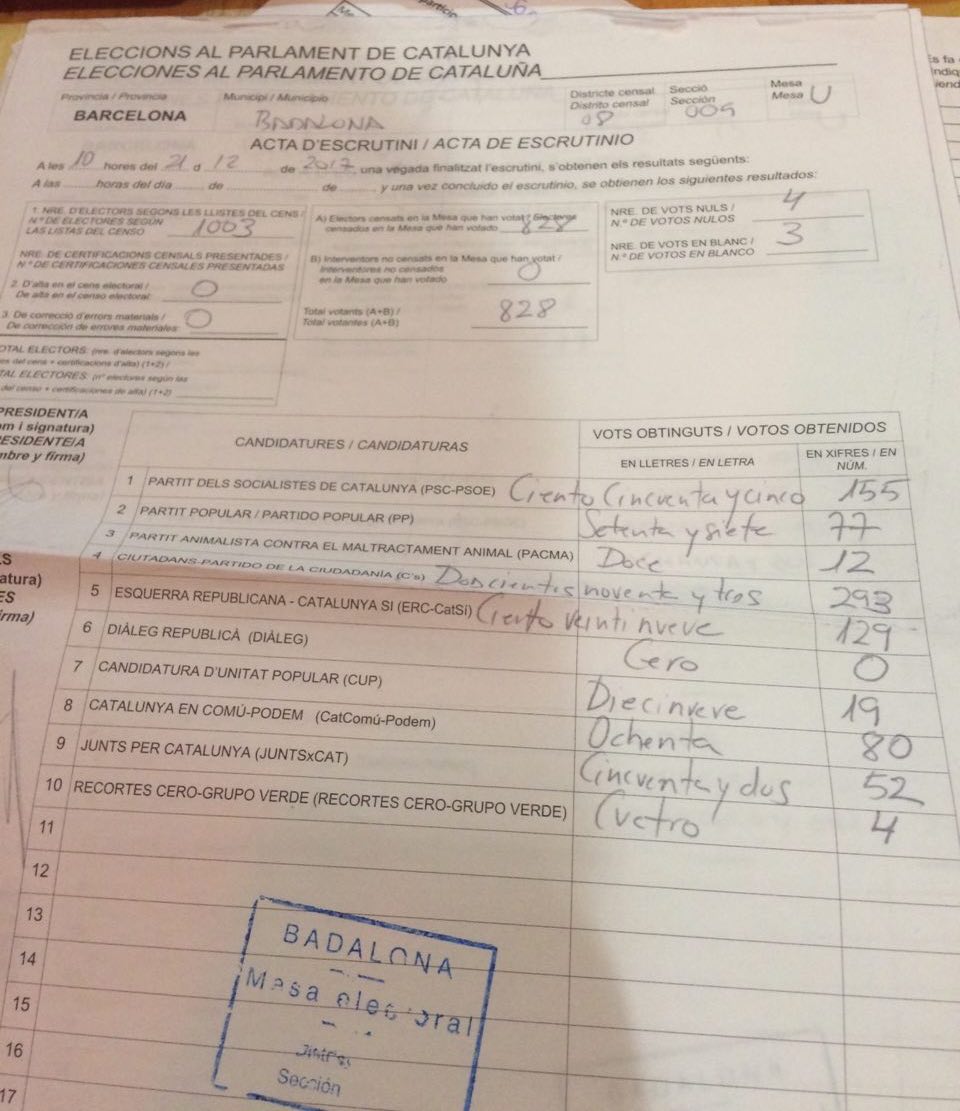 ELECCIONS AL PARLAMENT DE CATALUNYA
ELECCIONES AL PARLAMENTO DE CATALUÑA
Provincia / Provincia Municipi / Municipio Districte censal Secció Mesa
Distrito censal Sección Mesa U
BARCELONA BADALONA 08 009
ACTA D'ESCRUTINI / ACTA DE ESCRUTINIO
A les 10 hores del 21 d 12 de 2017 una vegada finalitzat l'escrutini, s'obtenen els resultats següents:
A las horas del día de de y una vez concluido el escrutinio, se obtienen los siguientes resultados:
1. NRE. D'ELECTORS SEGONS LES LLISTES DEL CENS /
N.º DE ELECTORES SEGÚN
LAS LISTAS DEL CENSO 1003
NRE. DE CERTIFICACIONS CENSALS PRESENTADES /
N.º DE CERTIFICACIONES CENSALES PRESENTADAS
2. D'alta en el cens electoral /
De alta en el censo electoral: 0
3. De correcció d'errors materials /
De corrección de errores materiales: 0
OTAL ELECTORS: (nre. d'electors segons les
es del cens + certificacions d'alta) (1+2) /
TAL ELECTORES: (nº electores según las
del censo + certificaciones de alta) (1+2)
A) Electors censats en la Mesa que han votat / Electores
censados en la Mesa que han votado 828
B) Interventors no censats en la Mesa que han votat /
Interventores no censados
en la Mesa que han votado 0
Total votants (A+B) /
Total votantes (A+B) 828
NRE. DE VOTS NULS /
N.º DE VOTOS NULOS 4
NRE. DE VOTS EN BLANC /
N.º DE VOTOS EN BLANCO 3
PRESIDENT/A
om i signatura)
ESIDENTE/A
mbre y firma)
CANDIDATURES / CANDIDATURAS
VOTS OBTINGUTS / VOTOS OBTENIDOS
EN LLETRES / EN LETRA EN XIFRES / EN
NÚM.
1 PARTIT DELS SOCIALISTES DE CATALUNYA (PSC-PSOE) Ciento Cincuenta y cinco 155
2 PARTIT POPULAR / PARTIDO POPULAR (PP) Setenta y siete 77
3 PARTIT ANIMALISTA CONTRA EL MALTRACTAMENT ANIMAL (PACMA) Doce 12
4 CIUTADANS-PARTIDO DE LA CIUDADANÍA (C's) Doscientis noventa y tres 293
5 ESQUERRA REPUBLICANA - CATALUNYA SI (ERC-CatSí) Ciento veintinueve 129
6 DIÀLEG REPUBLICÀ (DIÀLEG) Cero 0
7 CANDIDATURA D'UNITAT POPULAR (CUP) Diecinueve 19
8 CATALUNYA EN COMÚ-PODEM (CatComú-Podem) Ochenta 80
9 JUNTS PER CATALUNYA (JUNTSxCAT) Cincuenta y dos 52
10 RECORTES CERO-GRUPO VERDE (RECORTES CERO-GRUPO VERDE) Cuatro 4
11
12
13
14
15
16
17
S
atura)
ES
irma)
BADALONA
Mesa electoral
Sección